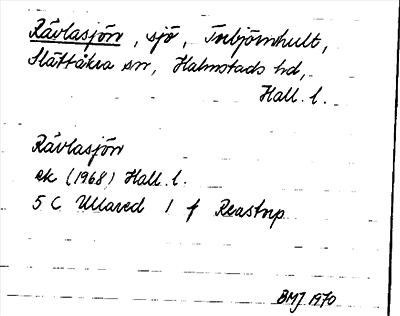 Rävlasjön, sjö, Torbjörnhult,
Slättåkra sn, Halmstads hd,
Hall. l.
Rävlasjön
ek (1968) Hall. l.
5 C Ullared 1 f Reastorp
BMJ 1970